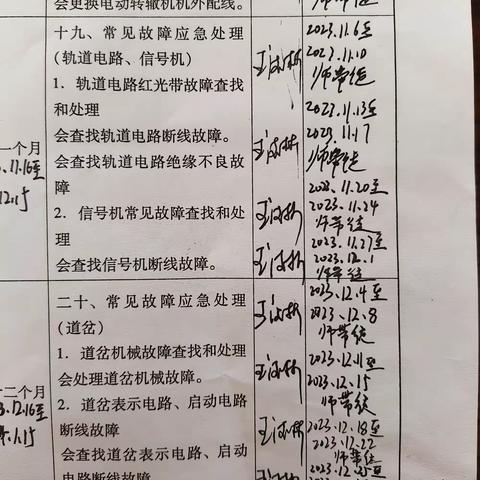 会更换电动转辙机机外配线。
十九、常见故障应急处理
（轨道电路、信号机）
1．轨道电路红光带故障查找
和处理
会查找轨道电路断线故障。
会查找轨道电路绝缘不良故
障
2．信号机常见故障查找和处
理
会查找信号机断线故障。
一个月
11.16至
12.15
2023.11.6至
2023.11.10
师带徒
2023.11.13至
2023.11.17
师带徒
2023.11.20至
2023.11.24
师带徒
2023.11.27至
2023.12.1
师带徒
二十、常见故障应急处理
（道岔）
1．道岔机械故障查找和处理
会处理道岔机械故障。
2．道岔表示电路、启动电路
断线故障
会查找道岔表示电路、启动
电路断线故障。
十二个月
12.16至
1.15
2023.12.4至
2023.12.8
师带徒
2023.12.11至
2023.12.15
师带徒
2023.12.18至
2023.12.22
师带徒
2023.12.25至